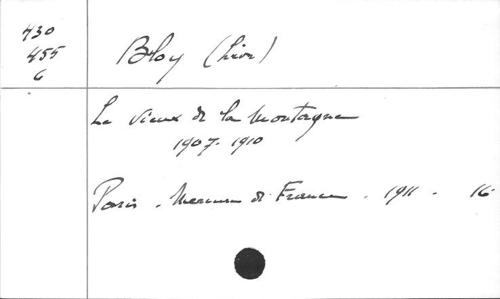 430
455
6
Bloy (Léon)
Le Vieux de la Montagne
1907-1910
Paris - Mercure de France - 1911 - 16